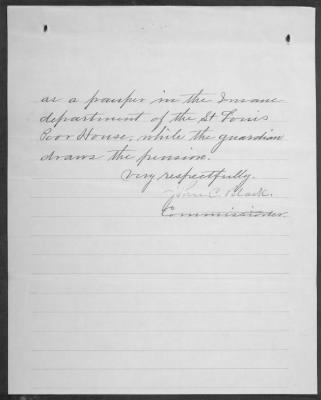 as a pauper in the Insane
department of the St Louis
Poor House, while the guardian
draws the pension.
Very respectfully.
John C. Black.
Commissioner.